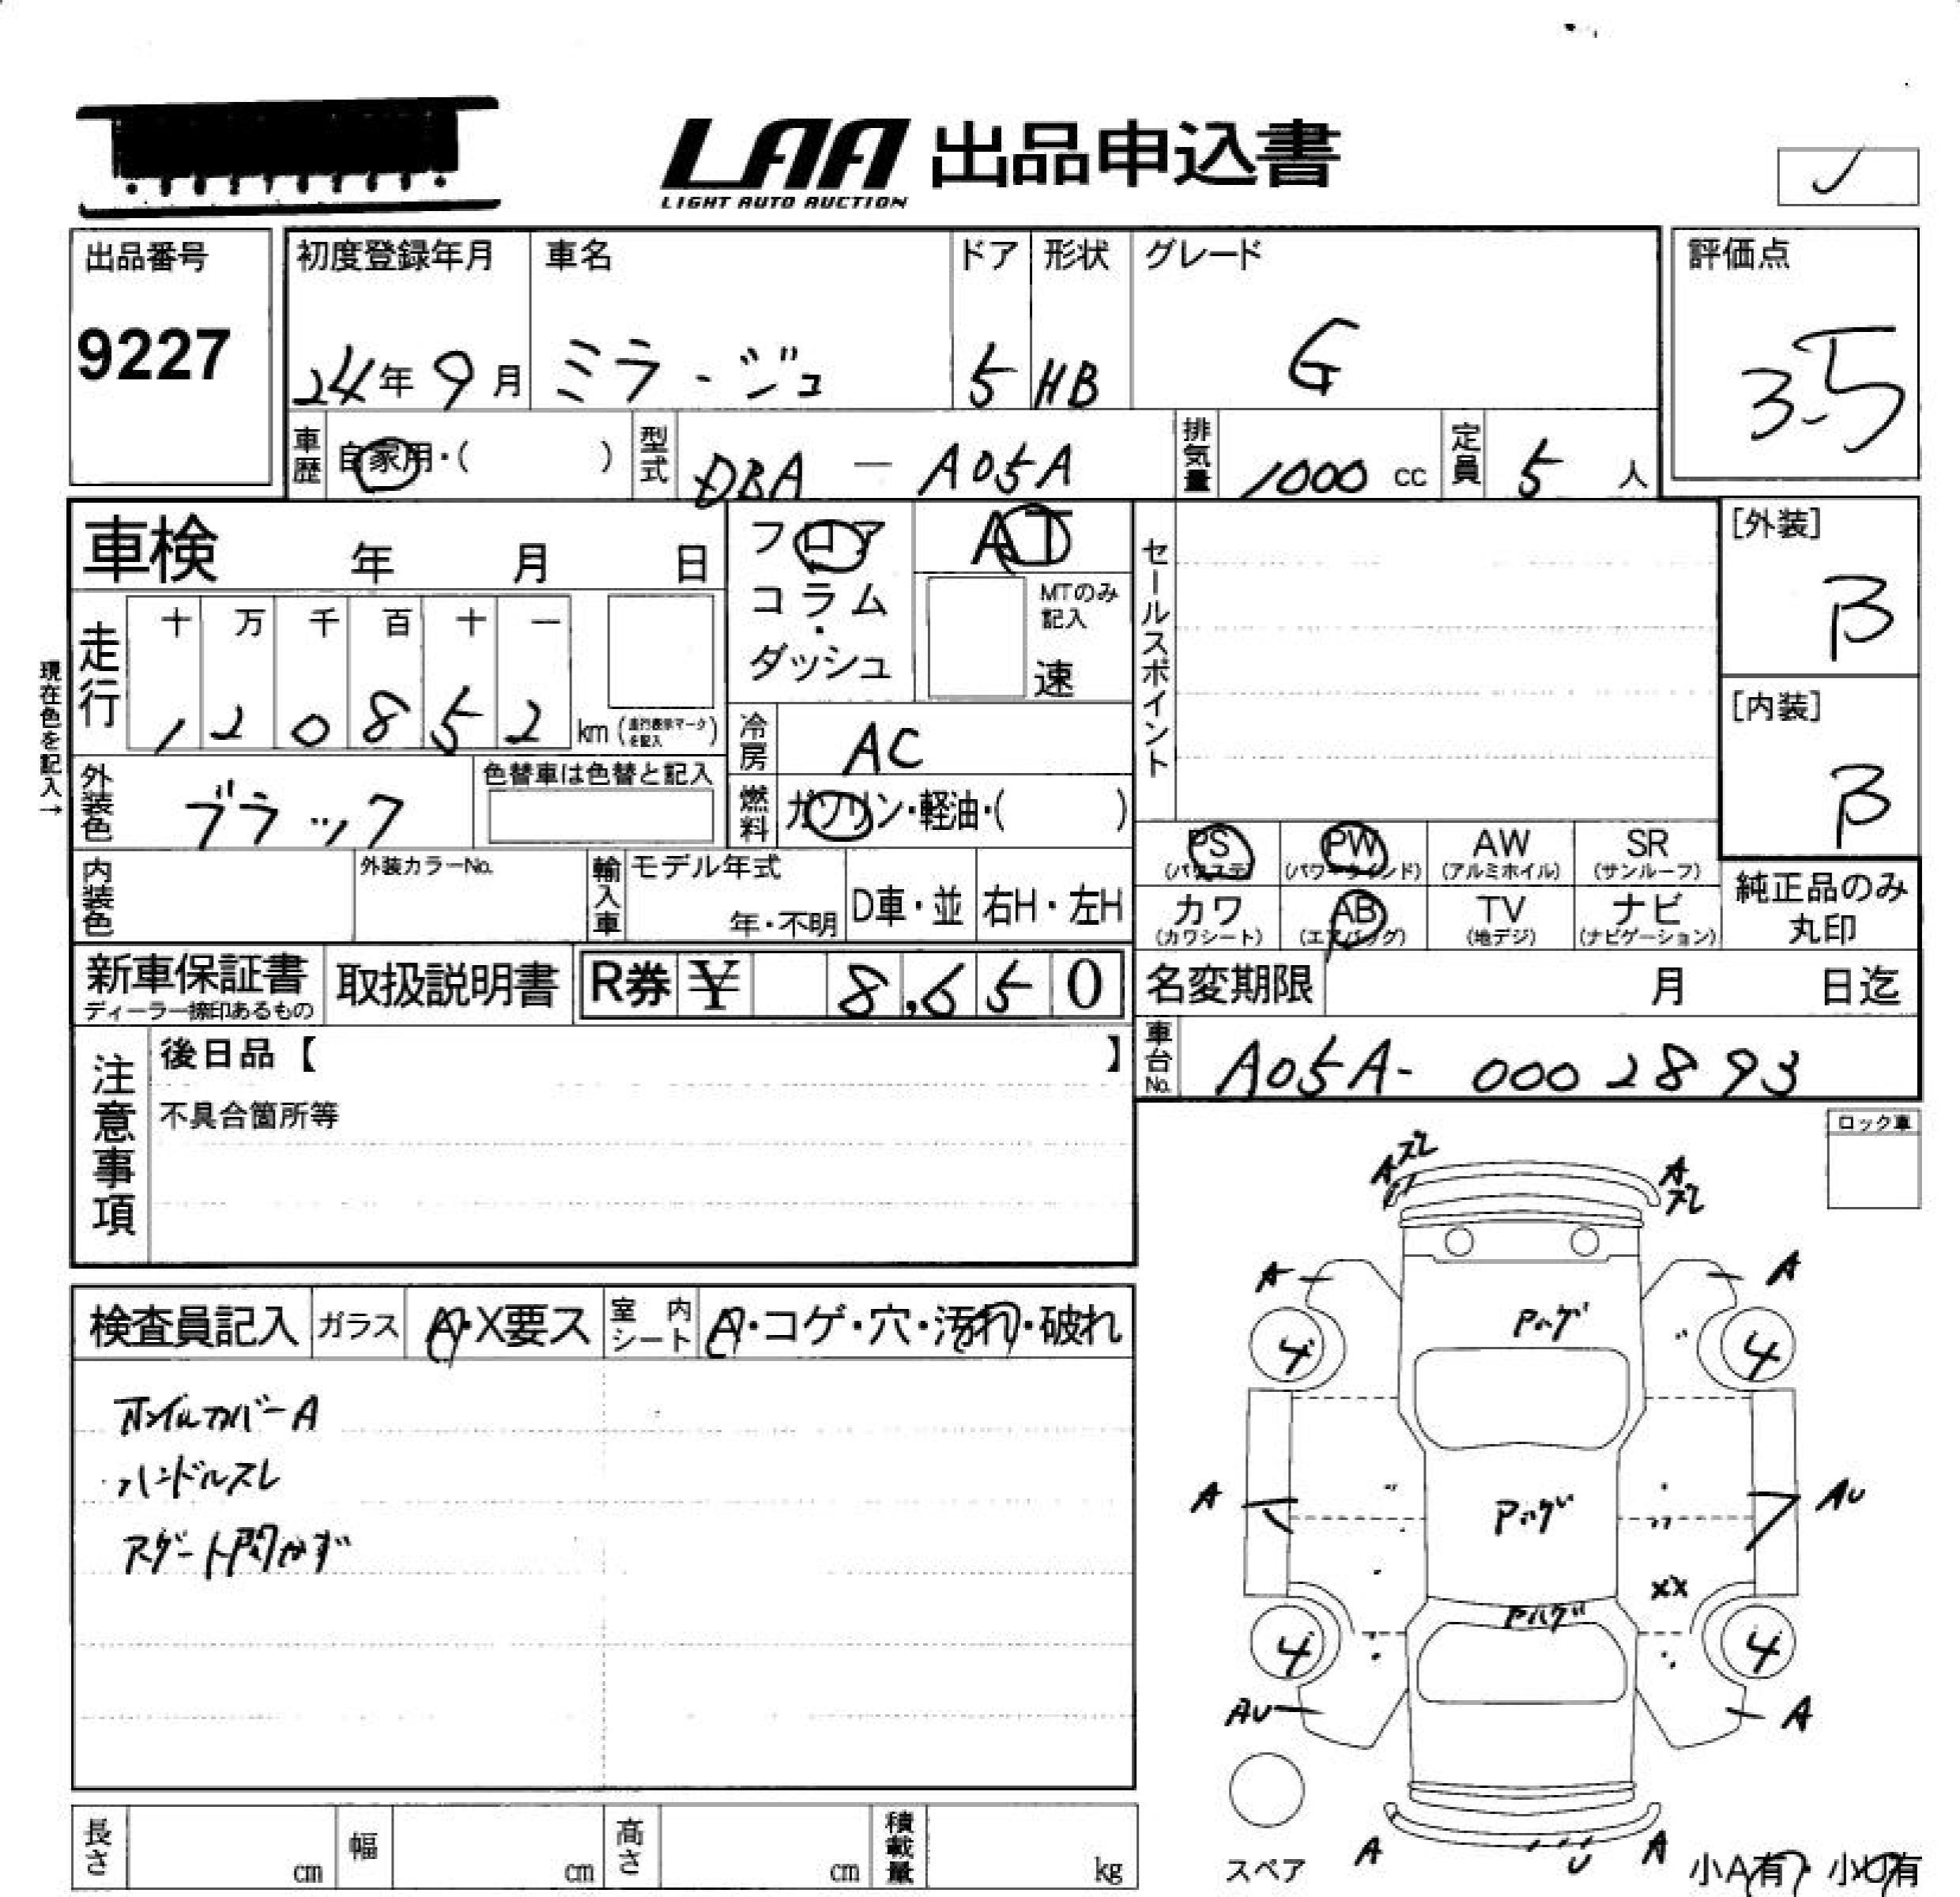 LAA 出品申込書
LIGHT AUTO AUCTION
出品番号
9227
初度登録年月
24年9月
車名
ミラージュ
ドア
5
形状
HB
グレード
G
評価点
3.5
車歴
自家用・( )
型式
DBA - A05A
排気量
1000 cc
定員
5 人
車検 年 月 日
フロア
コラム
・
ダッシュ
AT
MTのみ
記入
速
セールスポイント
[外装]
B
[内装]
B
現在色を記入→
走行
十 万 千 百 十 一
1 2 0 8 5 2 km (走行表示マークを記入)
冷房
AC
外装色
ブラック
色替車は色替と記入
燃料
ガソリン・軽油・( )
PS
(パワステ)
PW
(パワーウインド)
AW
(アルミホイル)
SR
(サンルーフ)
内装色
外装カラーNo.
輸入車
モデル年式
年・不明
D車・並
右H・左H
カワ
(カワシート)
AB
(エアバッグ)
TV
(地デジ)
ナビ
(ナビゲーション)
純正品のみ
丸印
新車保証書
ディーラー捺印あるもの
取扱説明書
R券 ¥ 8,650
名変期限 月 日迄
車台No.
A05A- 0002893
注意事項
後日品【 】
不具合箇所等
ロック車
検査員記入
ガラス
A・X要ス
室内シート
A・コゲ・穴・汚れ・破れ
ホイルカバーA
ハンドルスレ
スゲート開かず
Aスレ
Aスレ
A
A
Pハゲ
4
4
A
Pハゲ
AU
XX
Pハゲ
4
4
AU
A
A
U
A
スペア
小A有・小U有
長さ cm
幅 cm
高さ cm
積載量 kg